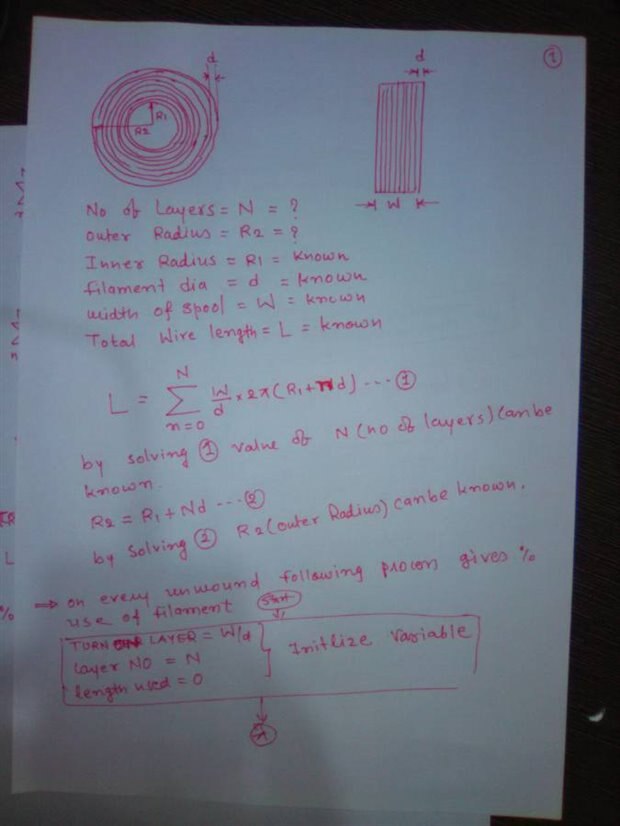 ①
d
d
R1
R2
W
No of Layers = N = ?
outer Radius = R2 = ?
Inner Radius = R1 = known
filament dia = d = known
width of spool = W = known
Total Wire length = L = known
L = N∑n=0 W/d × 2π(R1+nd) --- ①
by solving ① value of N (no of layers) can be
known.
R2 = R1 + Nd --- ②
by solving ② R2 (outer Radius) can be known.
⇒ on every unwound following process gives %
use of filament
Start
TURN LAYER = W/d
Layer NO = N
length used = 0
Initlize variable
A